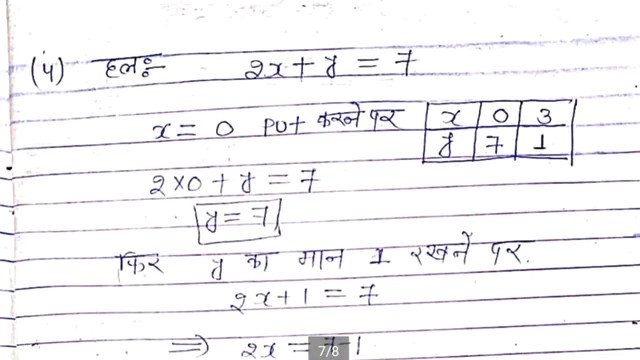 (4) हलः- 2x + y = 7
x = 0 put करने पर
x 0 3
y 7 1
2×0 + y = 7
y = 7
फिर y का मान 1 रखने पर.
2x + 1 = 7
⇒ 2x = 7-1
7/8